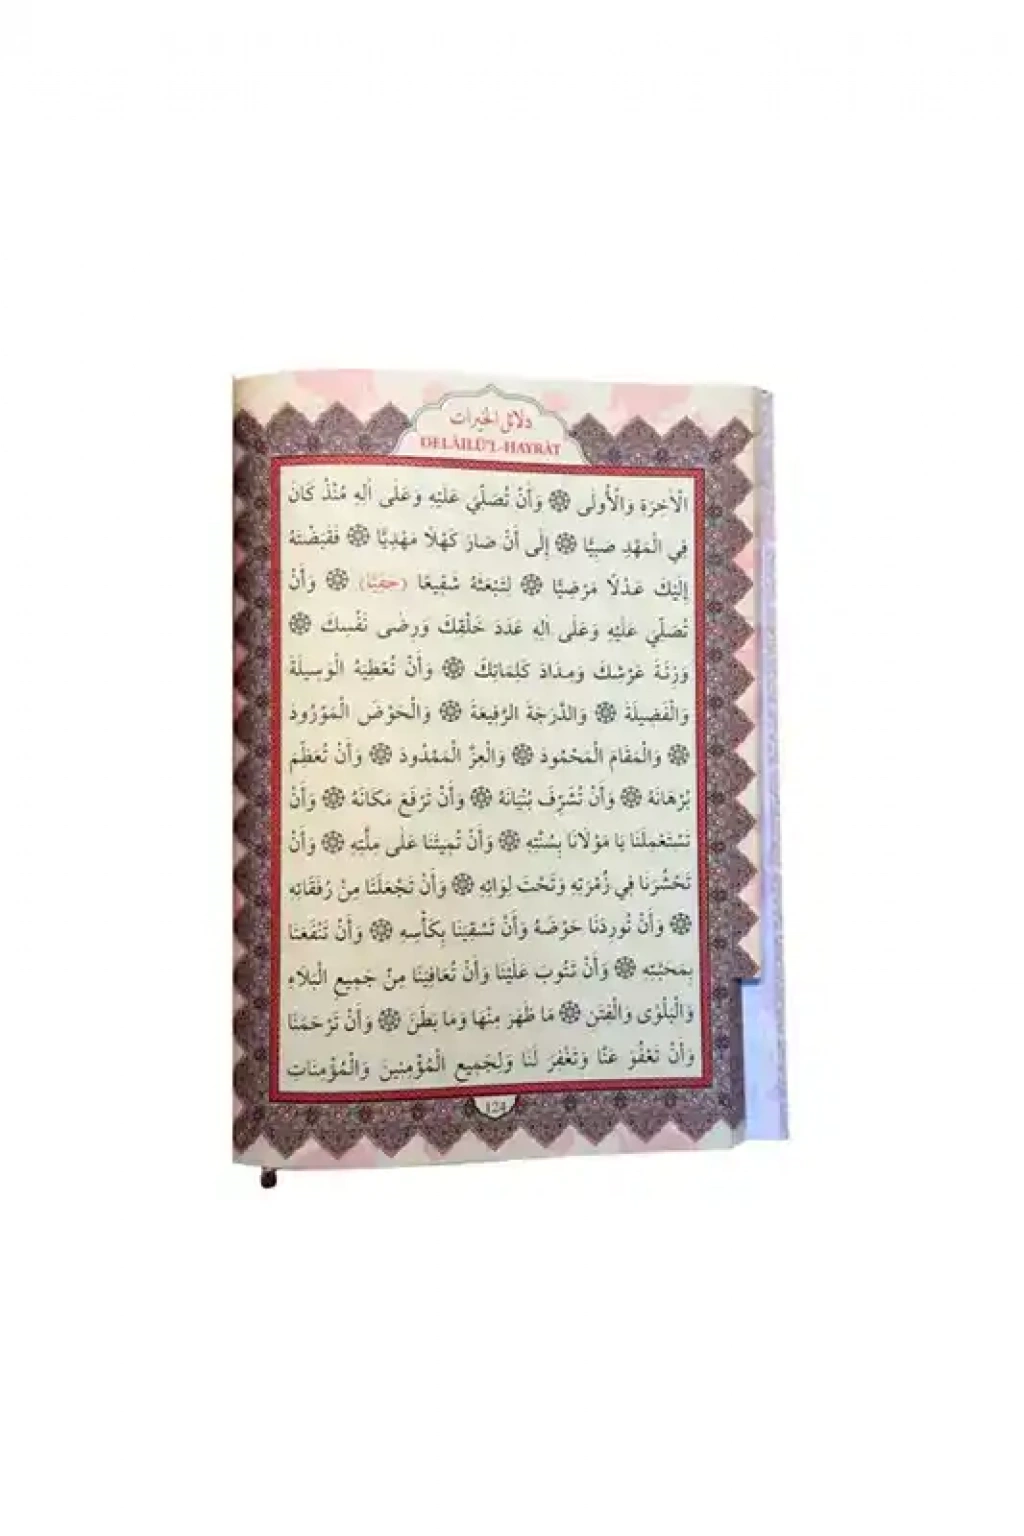 دلائل الخيرات
DELÂİLÜ'L-HAYRÂT
الْاٰخِرَةِ وَالْاُولٰى ۞ وَأَنْ تُصَلِّيَ عَلَيْهِ وَعَلٰى اٰلِهِ مُنْذُ كَانَ
فِي الْمَهْدِ صَبِيًّا ۞ إِلٰى أَنْ صَارَ كَهْلًا مَهْدِيًّا ۞ فَقَبَضْتَهُ
إِلَيْكَ عَدْلًا مَرْضِيًّا ۞ لِتَبْعَثَهُ شَفِيعًا (حَفِيًّا) ۞ وَأَنْ
تُصَلِّيَ عَلَيْهِ وَعَلٰى اٰلِهِ عَدَدَ خَلْقِكَ وَرِضٰى نَفْسِكَ ۞
وَزِنَةَ عَرْشِكَ وَمِدَادَ كَلِمَاتِكَ ۞ وَأَنْ تُعْطِيَهُ الْوَسِيلَةَ
وَالْفَضِيلَةَ ۞ وَالدَّرَجَةَ الرَّفِيعَةَ ۞ وَالْحَوْضَ الْمَوْرُودَ
۞ وَالْمَقَامَ الْمَحْمُودَ ۞ وَالْعِزَّ الْمَمْدُودَ ۞ وَأَنْ تُعَظِّمَ
بُرْهَانَهُ ۞ وَأَنْ تُشَرِّفَ بُنْيَانَهُ ۞ وَأَنْ تَرْفَعَ مَكَانَهُ ۞ وَأَنْ
تَسْتَعْمِلَنَا يَا مَوْلَانَا بِسُنَّتِهِ ۞ وَأَنْ تُمِيتَنَا عَلٰى مِلَّتِهِ ۞ وَأَنْ
تَحْشُرَنَا فِي زُمْرَتِهِ وَتَحْتَ لِوَائِهِ ۞ وَأَنْ تَجْعَلَنَا مِنْ رُفَقَائِهِ
۞ وَأَنْ تُورِدَنَا حَوْضَهُ وَأَنْ تَسْقِيَنَا بِكَأْسِهِ ۞ وَأَنْ تَنْفَعَنَا
بِمَحَبَّتِهِ ۞ وَأَنْ تَتُوبَ عَلَيْنَا وَأَنْ تُعَافِيَنَا مِنْ جَمِيعِ الْبَلَاءِ
وَالْبَلْوٰى وَالْفِتَنِ ۞ مَا ظَهَرَ مِنْهَا وَمَا بَطَنَ ۞ وَأَنْ تَرْحَمَنَا
وَأَنْ تَعْفُوَ عَنَّا وَتَغْفِرَ لَنَا وَلِجَمِيعِ الْمُؤْمِنِينَ وَالْمُؤْمِنَاتِ
124